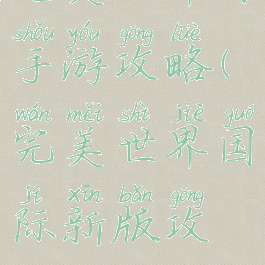 shǒu yóu gōng lüè
手游攻略(
wán měi shì jiè guó
完美世界国
jì xīn bǎn gōng
际新版攻